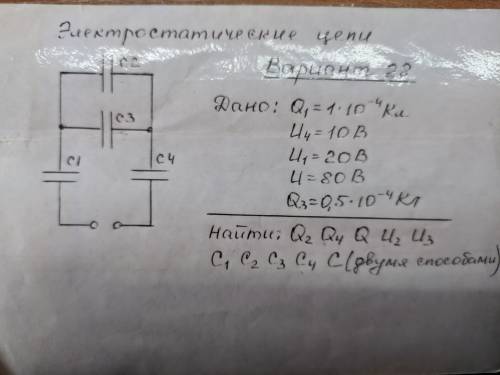 Электростатические цепи
Вариант 28
C2
Дано: Q₁=1·10⁻⁴Кл
C3
U₄=10В
C1
C4
U₁=20В
U=80В
Q₃=0,5·10⁻⁴Кл
Найти: Q₂ Q₄ Q U₂ U₃
C₁ C₂ C₃ C₄ C (двумя способами)